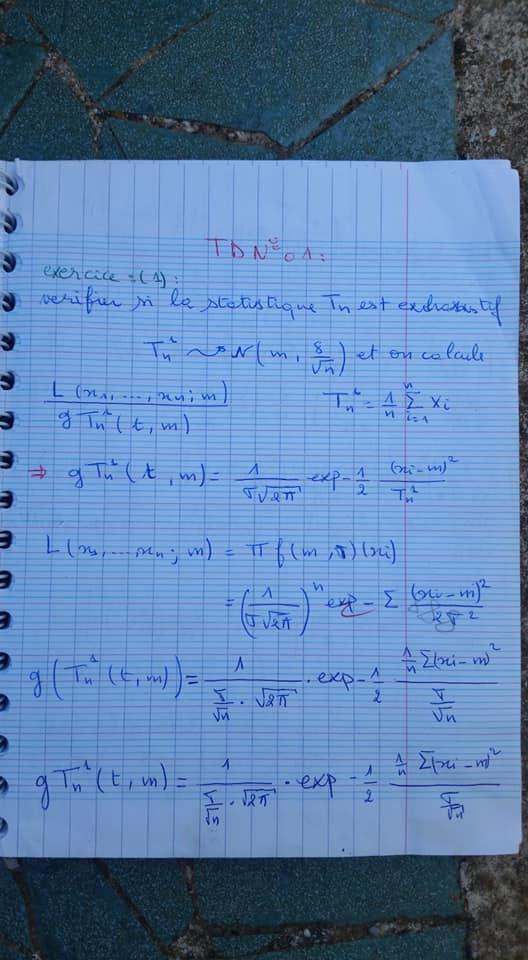 TD N° 01:
exercice : (1) :
verifier si la statistique Tn est exhaustif
Tn¹ ⤳ N(m, δ/√n) et on calcule
L(x1, ..., xn; m) / g Tn¹(t, m)    Tn¹ = 1/n Σ(i=1 à n) Xi
⇒ g Tn¹(t, m) = 1/(σ√2π) · exp - 1/2 (xi - m)²/Tn¹
L(x1, ... xn; m) = π f(m, σ)(xi)
= (1/(σ√2π))ⁿ exp - Σ (xi - m)²/2σ²
g(Tn¹(t, m)) = 1/(σ/√n · √2π) · exp - 1/2 (1/n Σ(xi - m)²)/(σ/√n)
g Tn¹(t, m) = 1/(σ/√n · √2π) · exp - 1/2 (1/n Σ(xi - m)²)/(σ/√n)